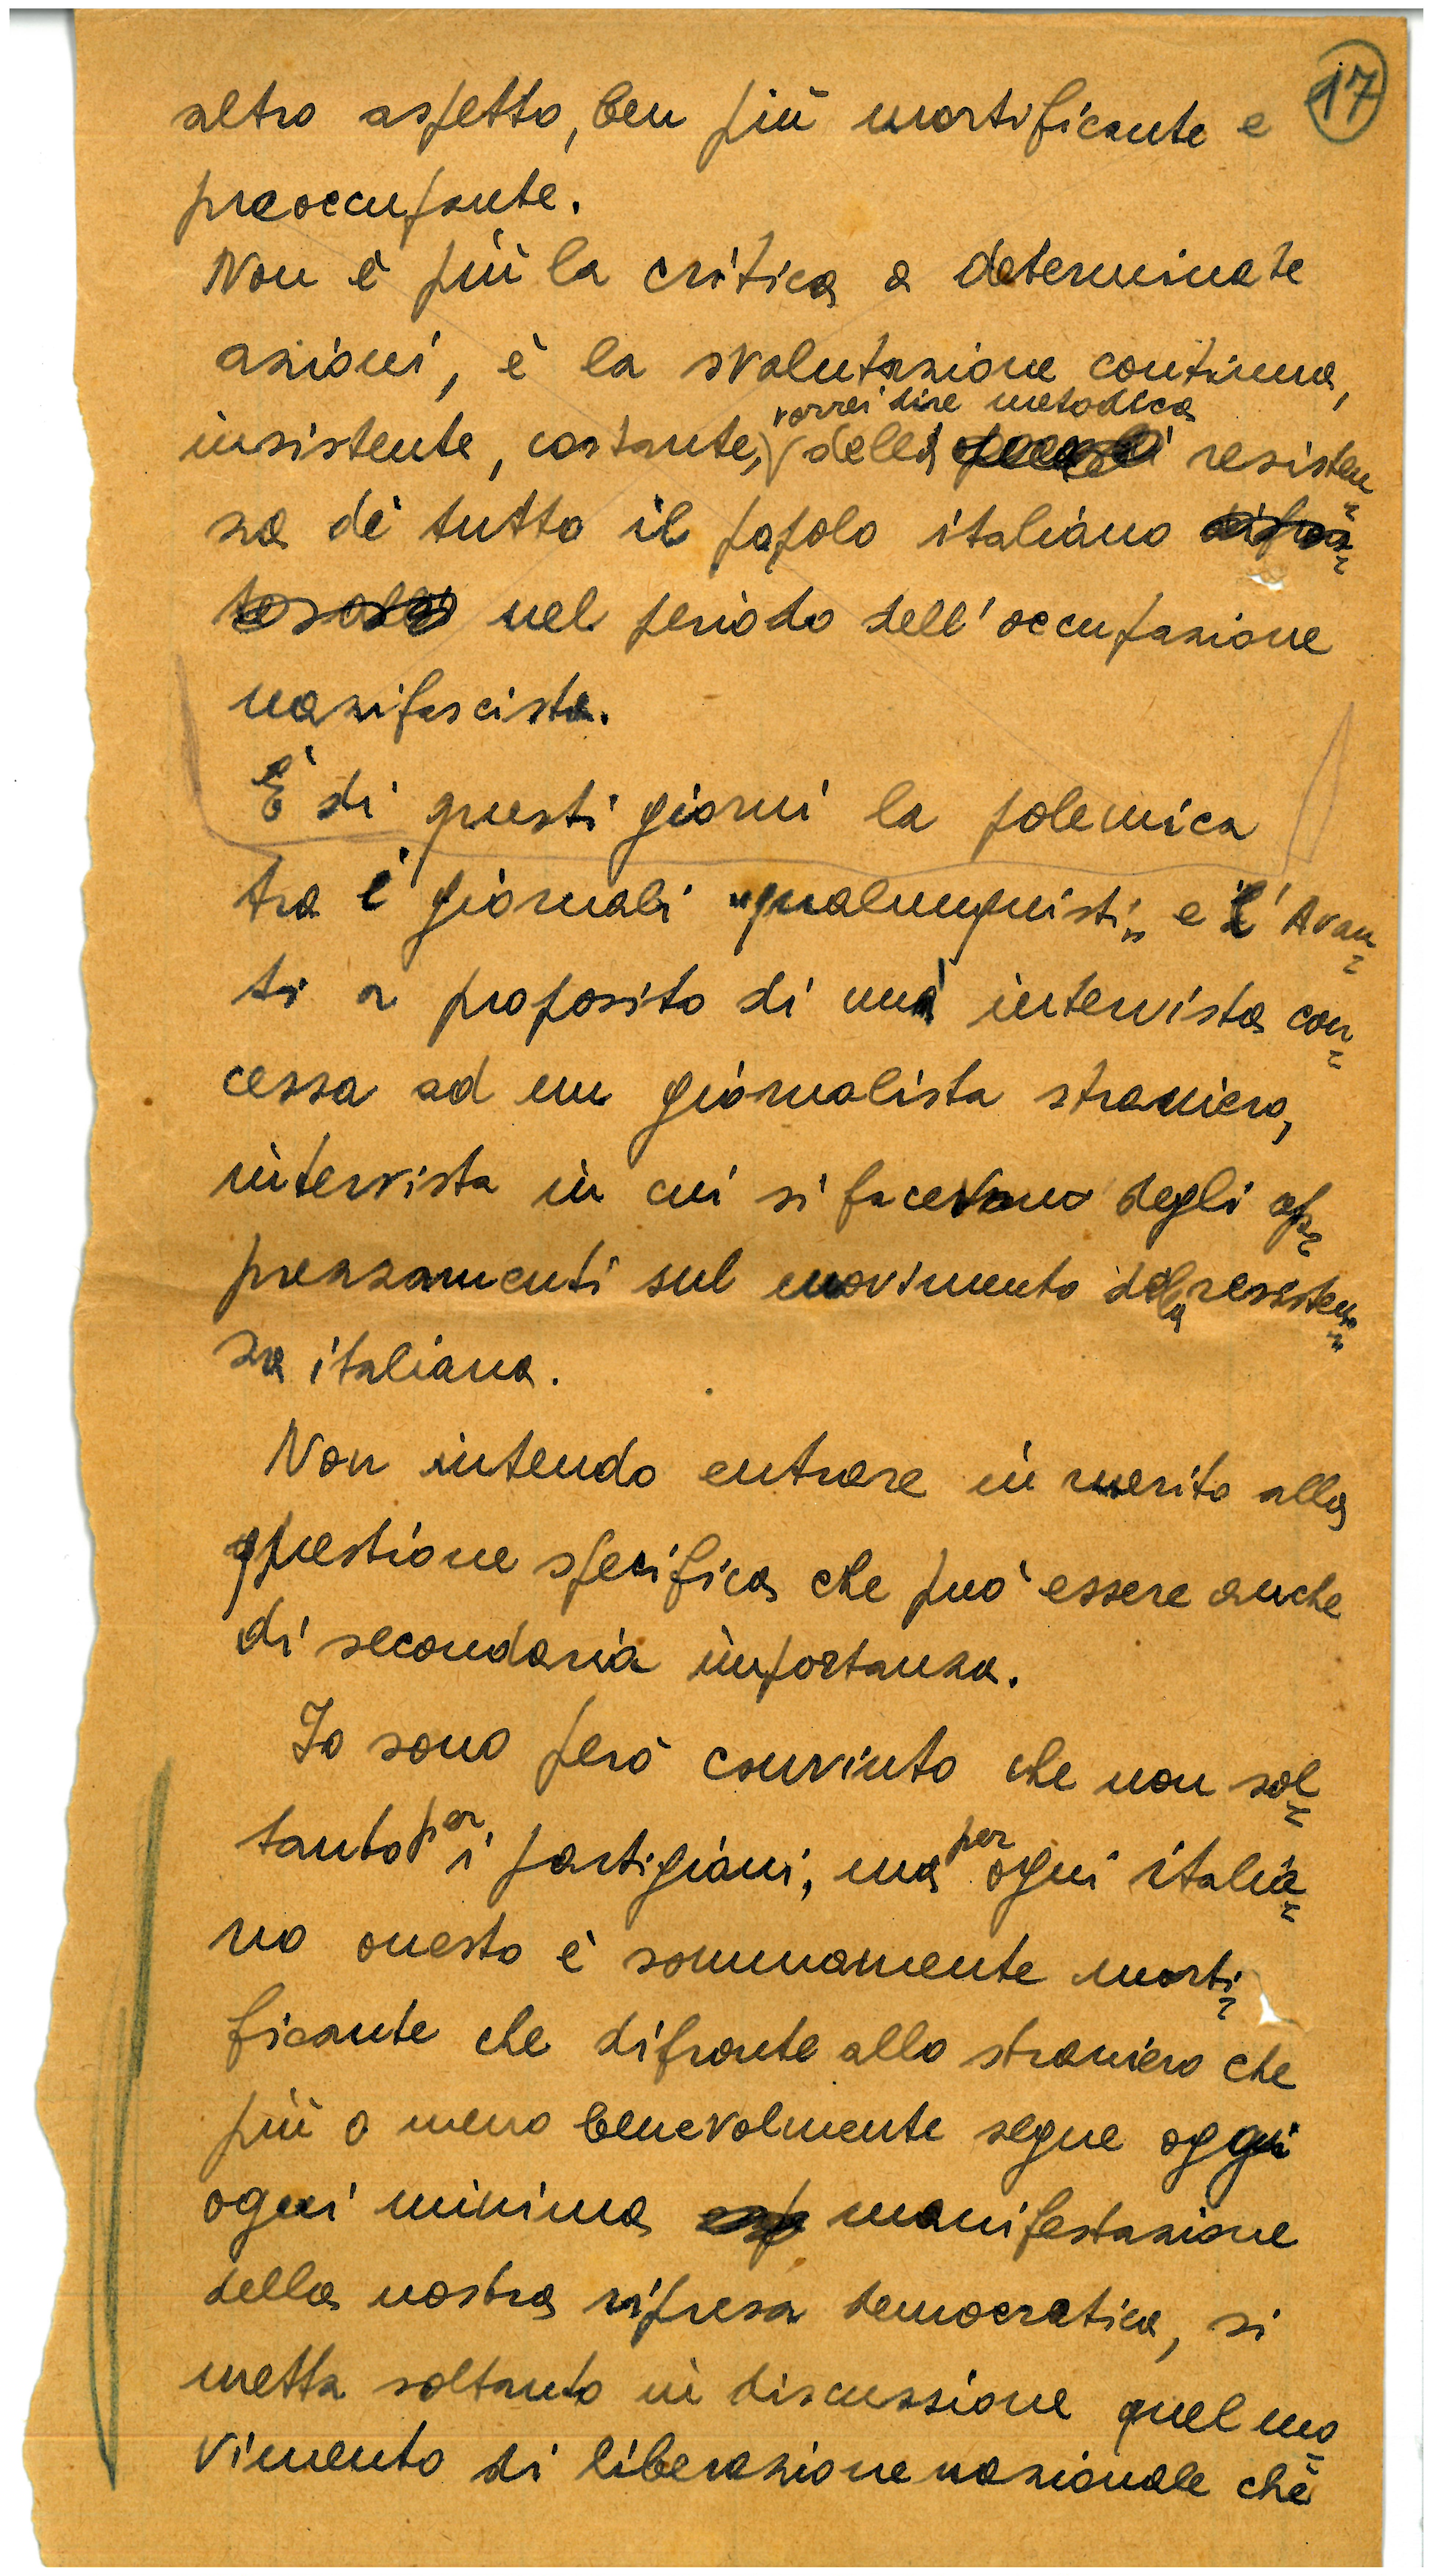 17
altro aspetto, ben più mortificante e
preoccupante.
Non è più la critica a determinate
azioni, è la svalutazione continua,
vorrei dire metodica
insistente, costante, della resisten=
za di tutto il popolo italiano
nel periodo dell'occupazione
nazifascista.
È di questi giorni la polemica
tra i giornali "qualunquisti" e l'Avan=
ti a proposito di una intervista con=
cessa ad un giornalista straniero,
intervista in cui si facevano degli ap=
prezzamenti sul movimento della resisten=
za italiana.
Non intendo entrare in merito alla
questione specifica che può essere anche
di secondaria importanza.
Io sono però convinto che non sol=
tanto per i partigiani, ma per ogni italia=
no onesto è sommamente morti=
ficante che difronte allo straniero che
più o meno benevolmente segue oggi
ogni minima manifestazione
della nostra ripresa democratica, si
metta soltanto in discussione quel mo
vimento di liberazione nazionale che